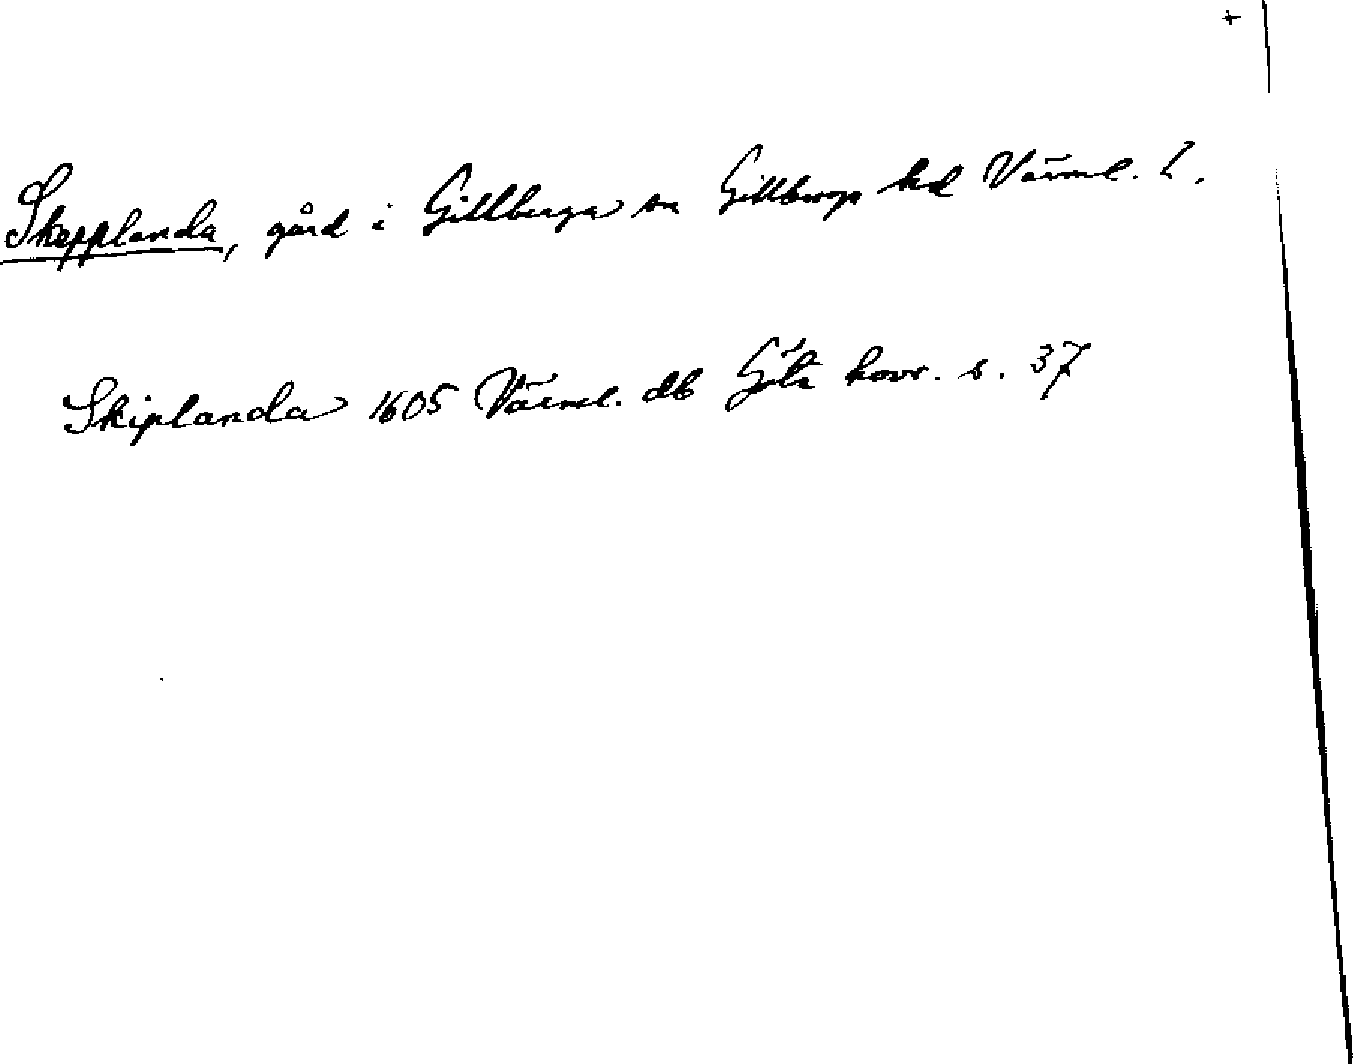 +
Skepplanda, gård i Gillberga sn Gillbergs hd Värml. l.
Skiplanda 1605 Värml. db Göta hovr. s. 37